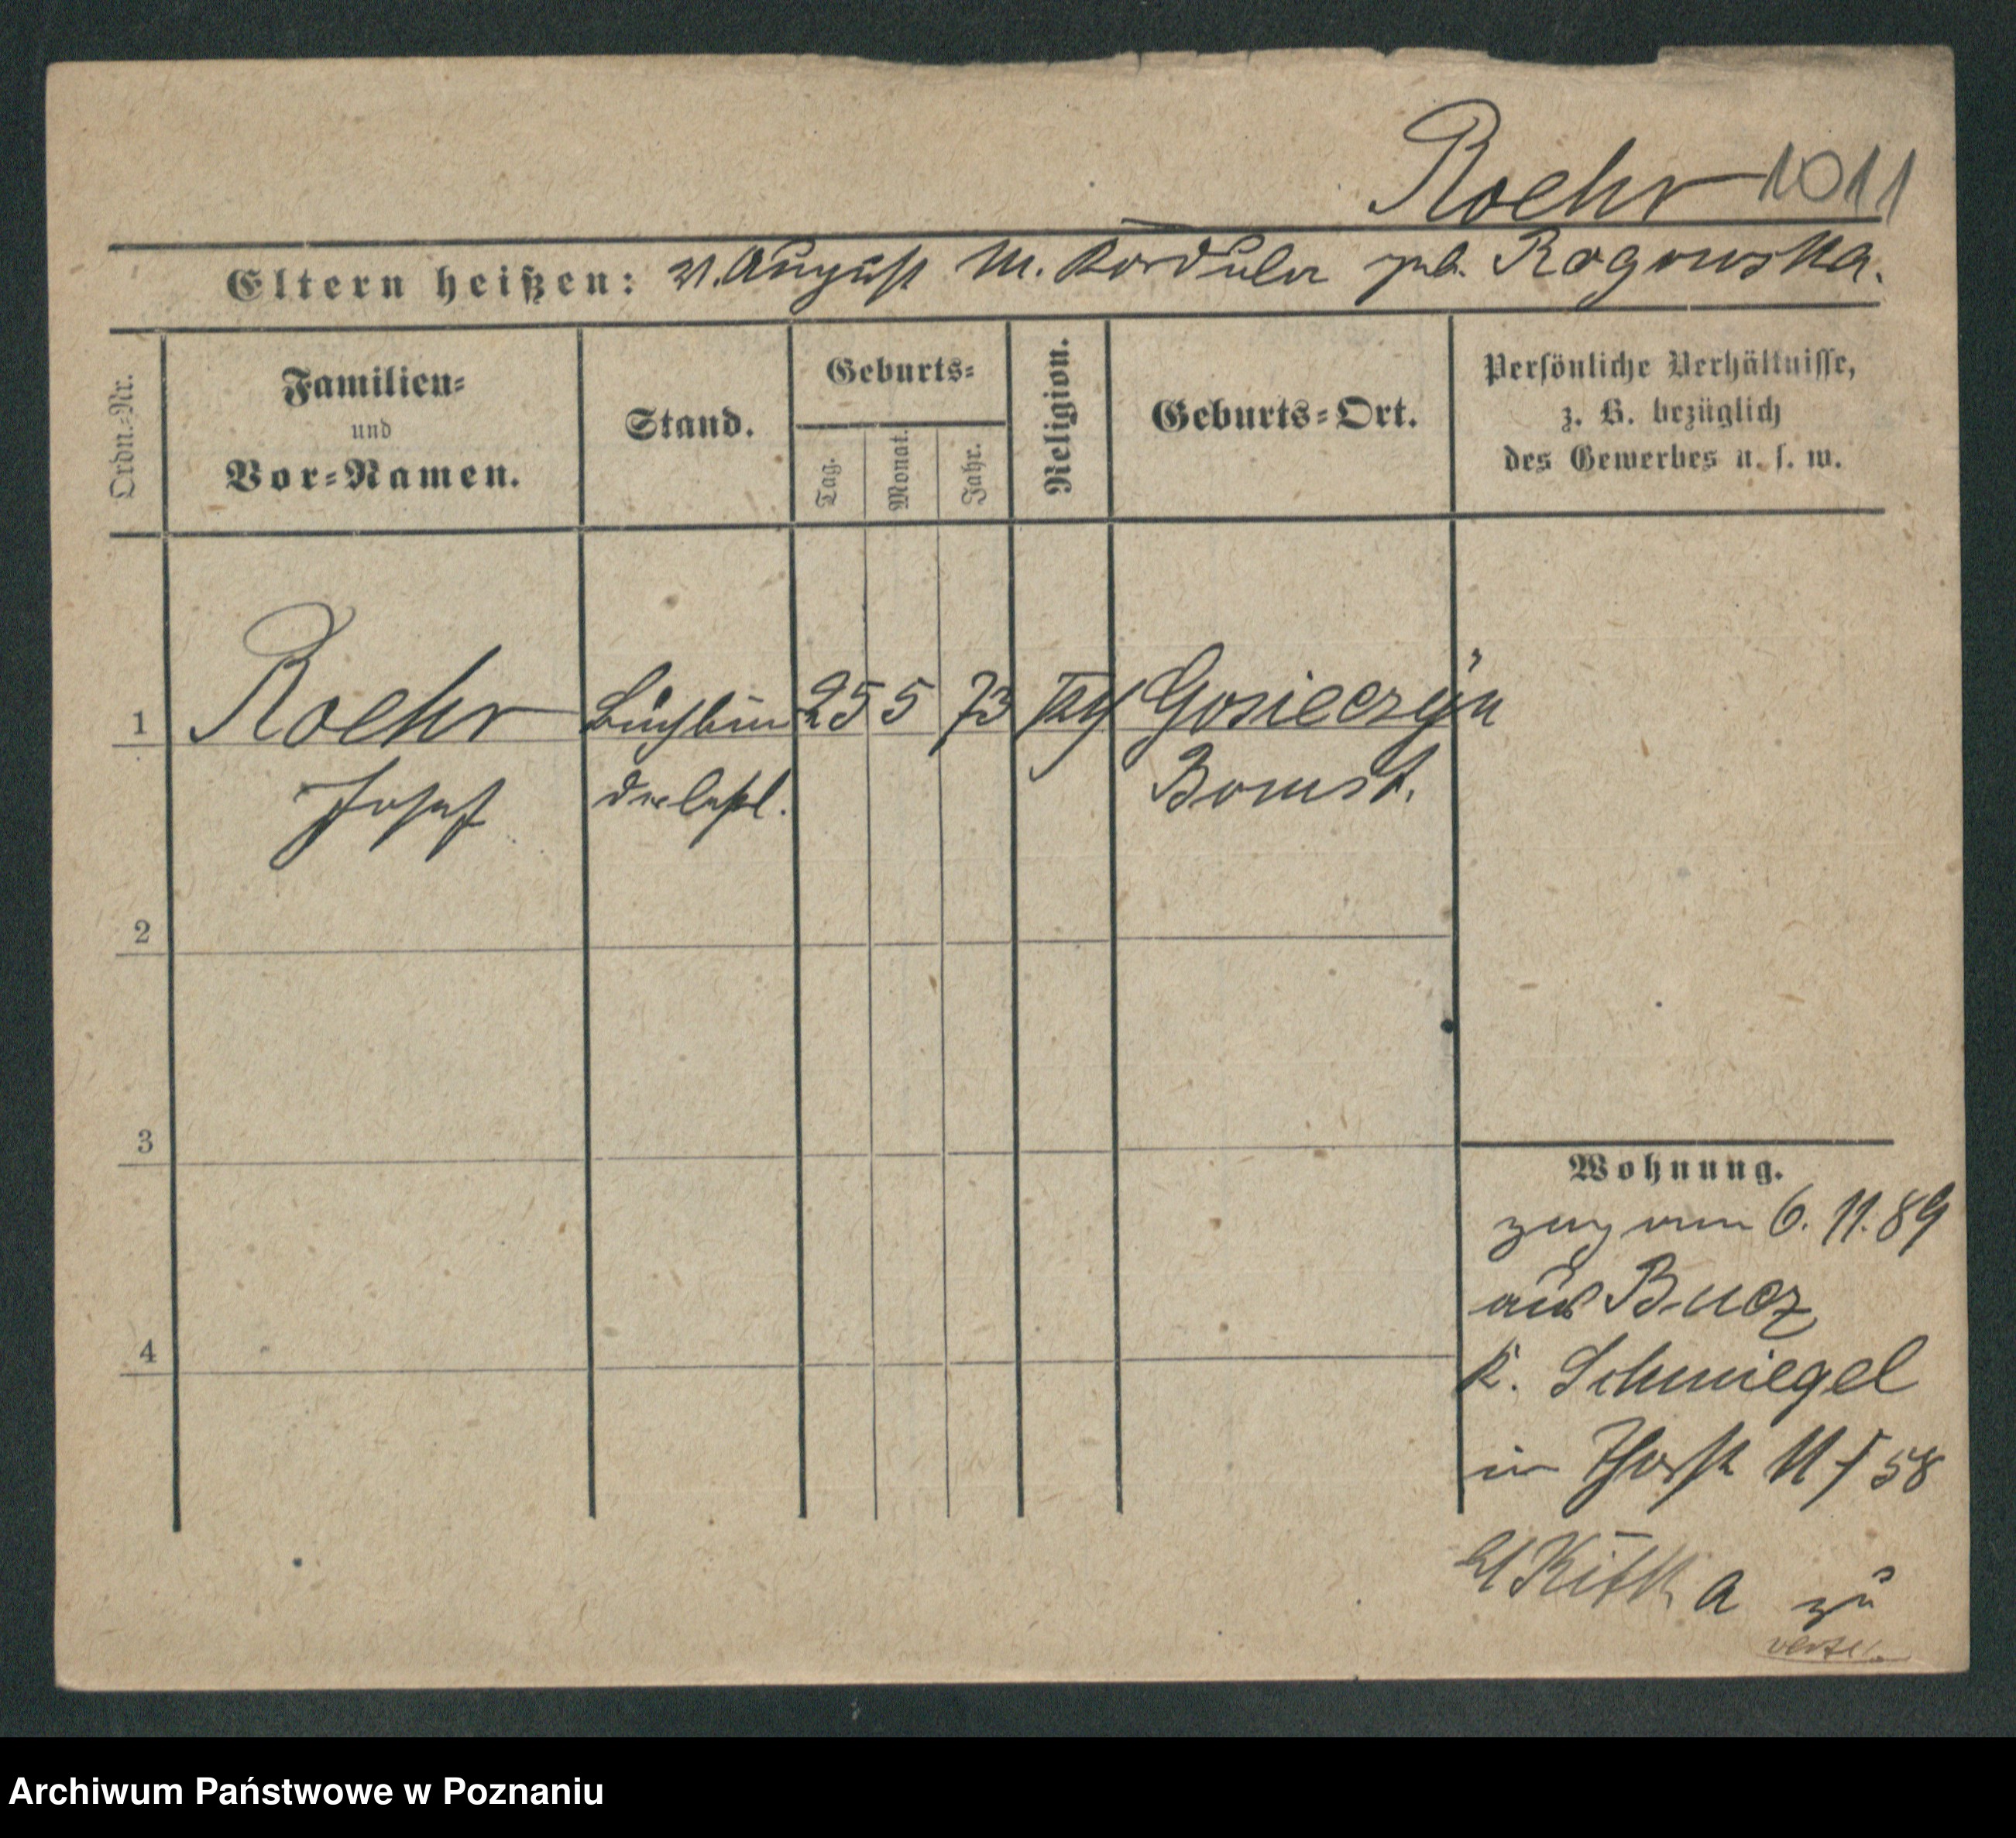 Roehr 1011
Eltern heißen: V. August M. Kordula geb. Rogowska.
Ordn.-Nr.
Familien-
und
Vor-Namen.
Stand.
Geburts-
Tag.
Monat.
Jahr.
Religion.
Geburts-Ort.
Persönliche Verhältnisse,
z. B. bezüglich
des Gewerbes u. s. w.
1 Roehr Buchbin 25 5 73 Gosieczyn
Josef Bomst.
2
3
4
Wohnung.
zug vom 6.11.89
aus Bucz
K. Schmiegel
in 58
zu
Archiwum Państwowe w Poznaniu